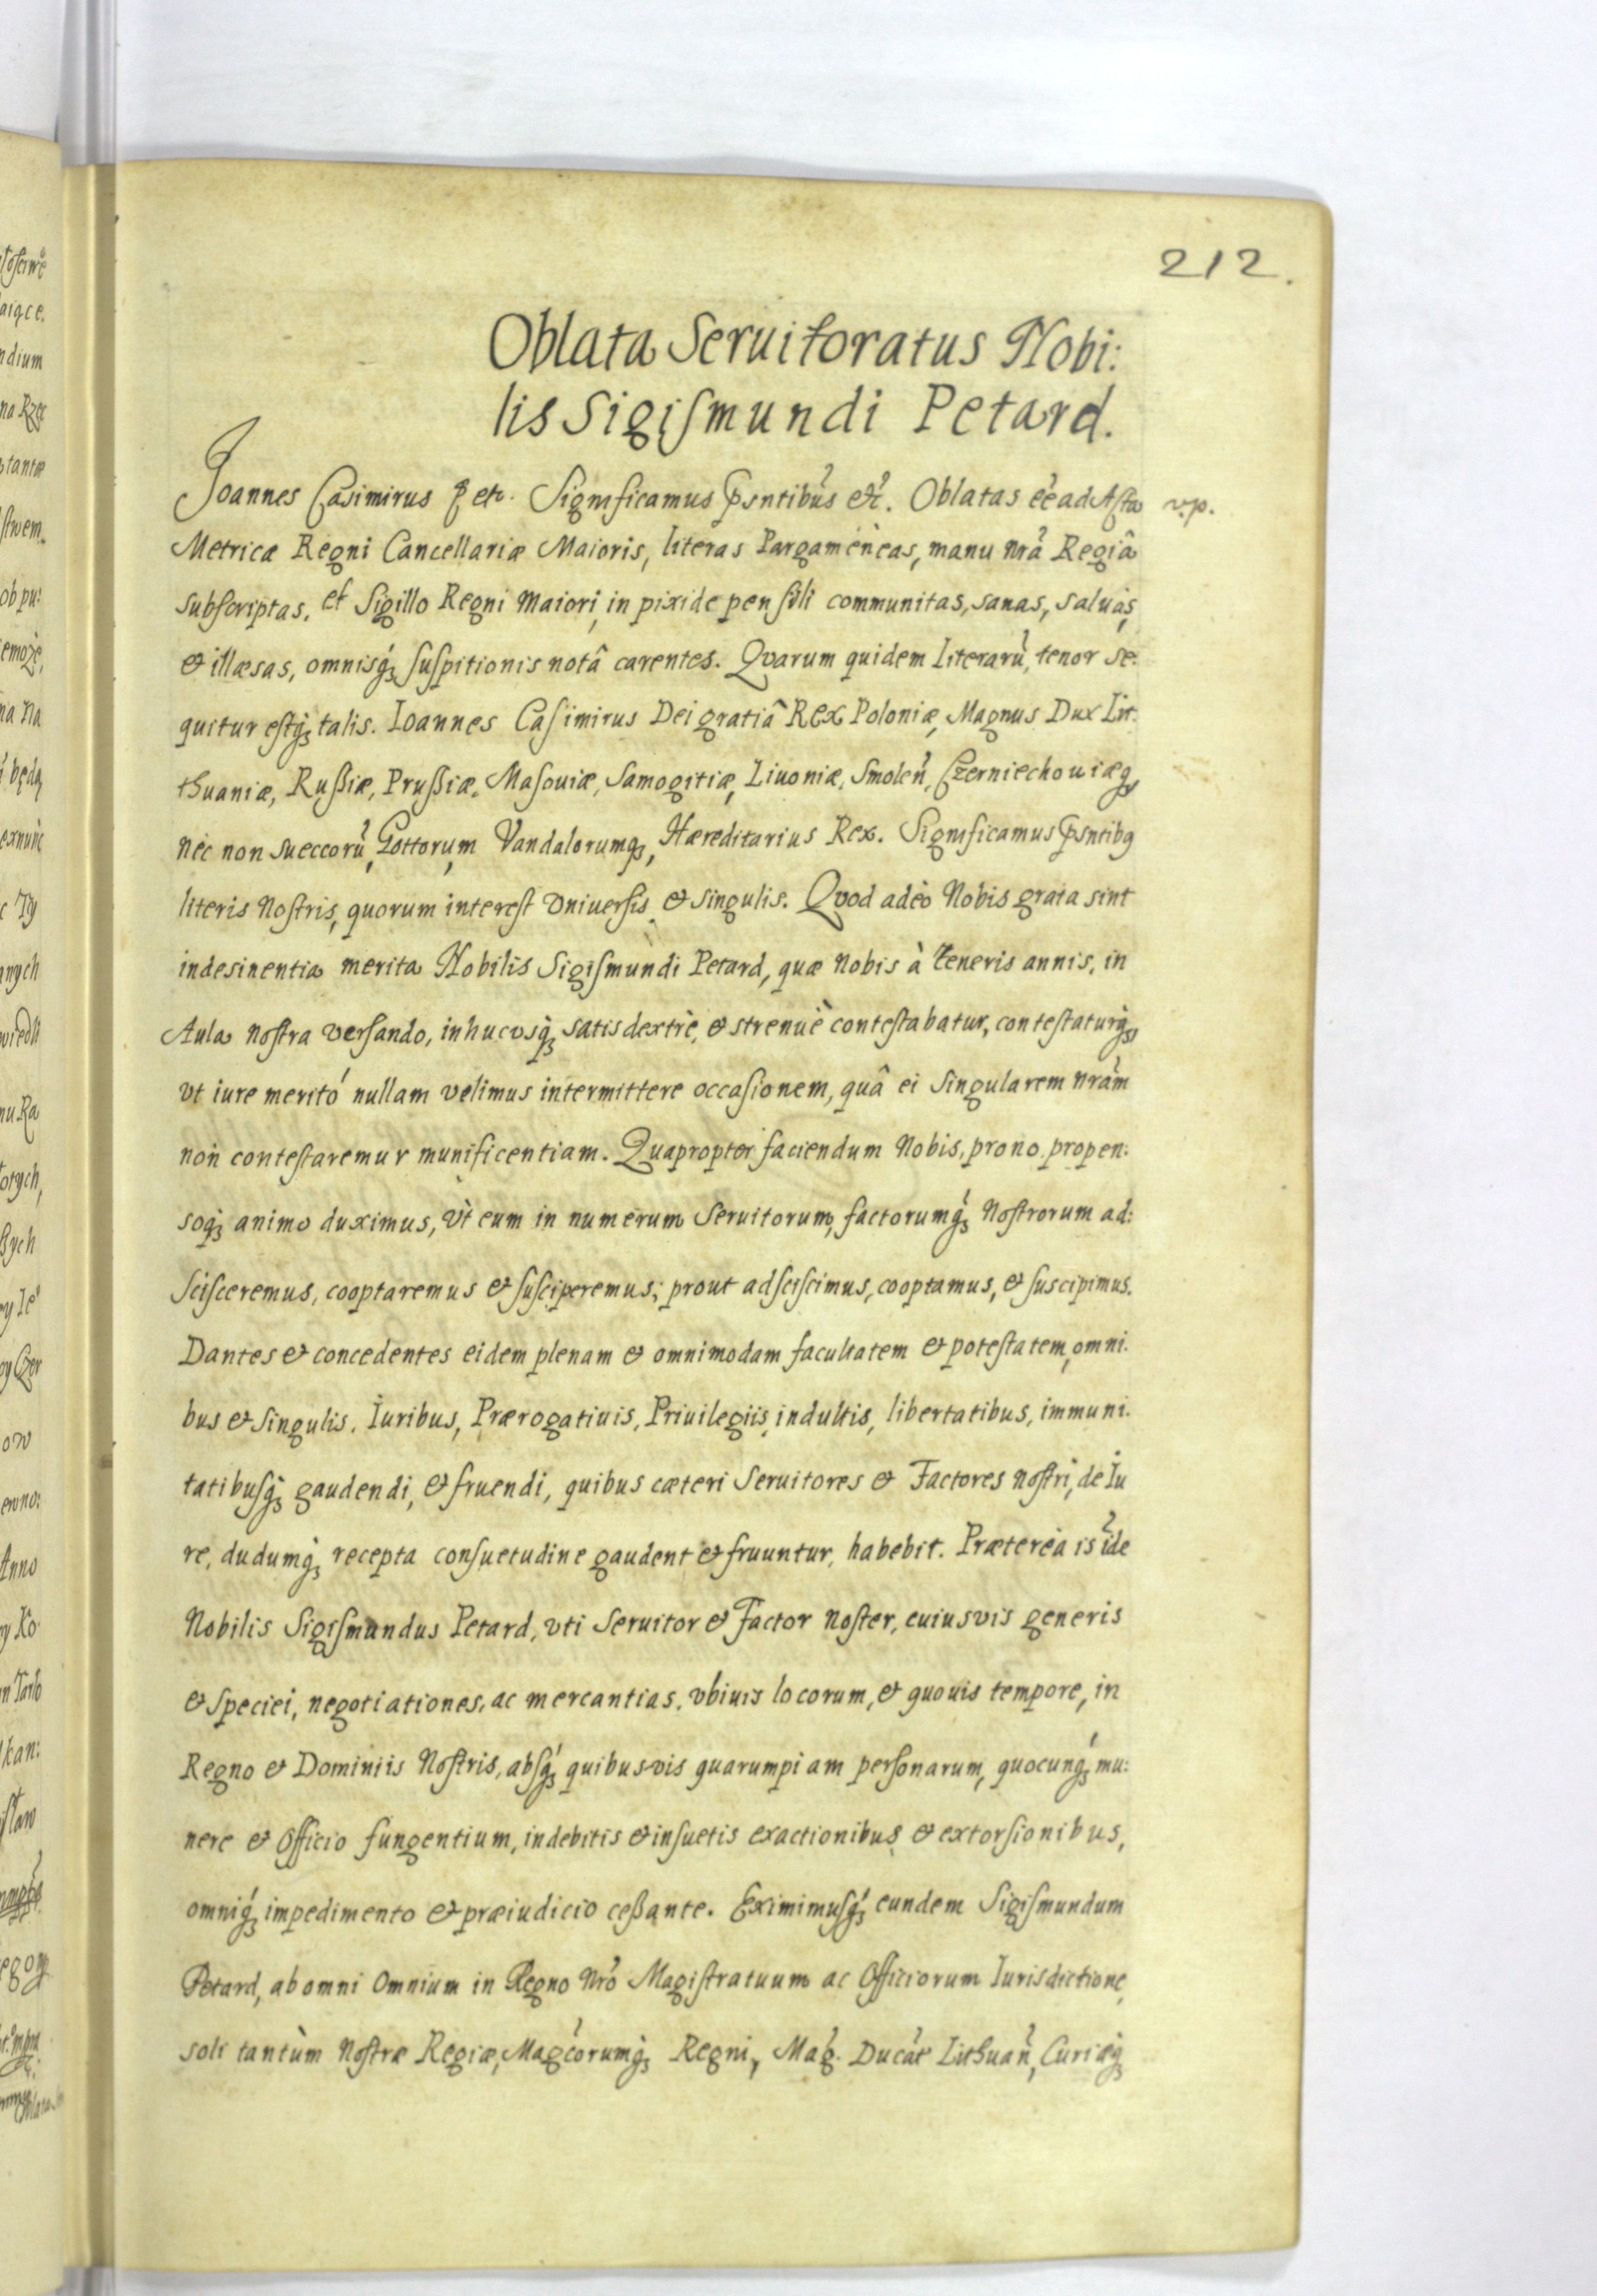 212.
Oblata Seruitoratus Nobi:
lis Sigismundi Petard.
Joannes Casimirus etc. Significamus psntibus etc. Oblatas eé ad Acta v.p.
Metricæ Regni Cancellariæ Maioris, literas Pargameneas, manu nrâ Regiâ
subscriptas, et Sigillo Regni Maiori, in pixide pensili communitas, sanas, saluas,
& illæsas, omnisq; suspitionis notâ carentes. Qvarum quidem literarũ, tenor se:
quitur estq; talis. Ioannes Casimirus Dei gratiâ Rex Poloniæ, Magnus Dux Lit:
thuaniæ, Rußiæ, Prußiæ, Masouiæ, Samogitiæ, Liuoniæ, Smoleń, Czerniechouiæq,
nec non Sueccorũ, Gottorum Vandalorumq, Hæreditarius Rex. Significamus psntibq
literis Nostris, quorum interest vniuersis & singulis. Qvod adèo Nobis grata sint
indesinentia merita Nobilis Sigismundi Petard, quæ Nobis à teneris annis, in
Aula nostra versando, in hucvsq; satis dextrè, & strenuè contestabatur, contestaturq;,
vt iure meritó nullam velimus intermittere occasionem, quâ ei singularem nram
non contestaremur munificentiam. Quapropter faciendum Nobis, prono propen:
soq; animo duximus, vt eum in numerum Seruitorum, factorumq; Nostrorum ad:
scisceremus, cooptaremus & susciperemus; prout adsciscimus, cooptamus, & suscipimus.
Dantes & concedentes eidem plenam & omnimodam facultatem & potestatem, omni:
bus & singulis, Iuribus, Prærogatiuis, Priuilegiis, indultis, libertatibus, immuni:
tatibusq; gaudendi, & fruendi, quibus cæteri Seruitores & Factores nostri, de Iu
re, dudumq; recepta consuetudine gaudent & fruuntur, habebit. Præterèa is ide
Nobilis Sigismundus Petard, vti Seruitor & Factor noster, cuiusvis generis
& speciei, negotiationes, ac mercantias, vbiuis locorum, & quouis tempore, in
Regno & Dominiis Nostris, absq; quibusvis quarumpiam personarum, quocunq; mu:
nere & Officio fungentium, indebitis & insuetis exactionibus & extorsionibus,
omniq; impedimento & præiudicio ceßante. Eximimusq; eundem Sigismundum
Petard, ab omni Omnium in Regno Nrõ Magistratuum ac Officiorum Iurisdictione,
soli tantùm Nostræ Regiæ, Magcorumq; Regni, Mag. Ducat Lithuań, Curiæq;